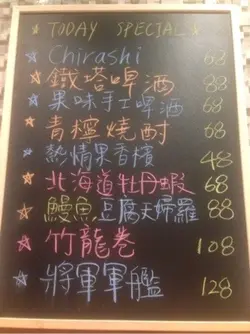 ★ TODAY SPECIAL ★
★ Chirashi 68
★ 鐵塔啤酒 88
★ 果味手工啤酒 68
★ 青檸燒酎 68
★ 熱情果香檳 48
★ 北海道牡丹蝦 68
★ 鰻魚豆腐天婦羅 88
★ 竹龍卷 108
★ 將軍軍艦 128